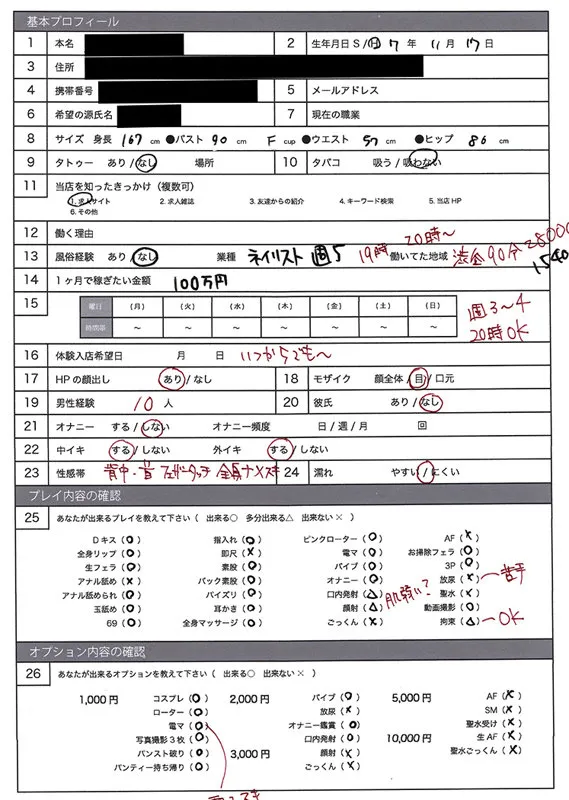 基本プロフィール
1 本名 2 生年月日 S / H 7 年 11 月 17 日
3 住所
4 携帯番号 5 メールアドレス
6 希望の源氏名 7 現在の職業
8 サイズ 身長 167 cm ●バスト 90 cm F cup ●ウエスト 57 cm ●ヒップ 86 cm
9 タトゥー あり / なし 場所 10 タバコ 吸う / 吸わない
11 当店を知ったきっかけ（複数可）
1. 求人サイト 2. 求人雑誌 3. 友達からの紹介 4. キーワード検索 5. 当店HP
6. その他
12 働く理由
19時 20時〜
13 風俗経験 あり / なし 業種 ネイリスト 週5 働いてた地域 渋谷 90分
14 1ヶ月で稼ぎたい金額 100万円
15 曜日 （月） （火） （水） （木） （金） （土） （日）
時間帯 〜 〜 〜 〜 〜 〜 〜
週3〜4
20時OK
16 体験入店希望日 月 日 いつからでも〜
17 HPの顔出し あり / なし 18 モザイク 顔全体 / 目 / 口元
19 男性経験 10 人 20 彼氏 あり / なし
21 オナニー する / しない オナニー頻度 日 / 週 / 月 回
22 中イキ する / しない 外イキ する / しない
23 性感帯 背中・首 フェザータッチ 全身ナメスキ 24 濡れ やすい / にくい
プレイ内容の確認
25 あなたが出来るプレイを教えて下さい（ 出来る○ 多分出来る△ 出来ない× ）
Dキス（○） 指入れ（○） ピンクローター（○） AF（×）
全身リップ（○） 即尺（×） 電マ（○） お掃除フェラ（○）
生フェラ（○） 素股（○） バイブ（○） 3P（○）
アナル舐め（×） バック素股（○） オナニー（○） 放尿（×）〜苦手
アナル舐められ（○） パイズリ（○） 口内発射（△） 聖水（×）
肌弱い？
玉舐め（○） 耳かき（○） 顔射（△） 動画撮影（○）
69（○） 全身マッサージ（○） ごっくん（×） 拘束（△）〜OK
オプション内容の確認
26 あなたが出来るオプションを教えて下さい（ 出来る○ 出来ない× ）
1,000円 コスプレ（○） 2,000円 バイブ（○） 5,000円 AF（×）
ローター（○） 放尿（×） SM（×）
電マ（○） オナニー鑑賞（○） 聖水受け（×）
写真撮影3枚（○） 口内発射（○） 10,000円 生AF（×）
パンスト破り（○） 3,000円 顔射（×） 聖水ごっくん（×）
パンティー持ち帰り（○） ごっくん（×）